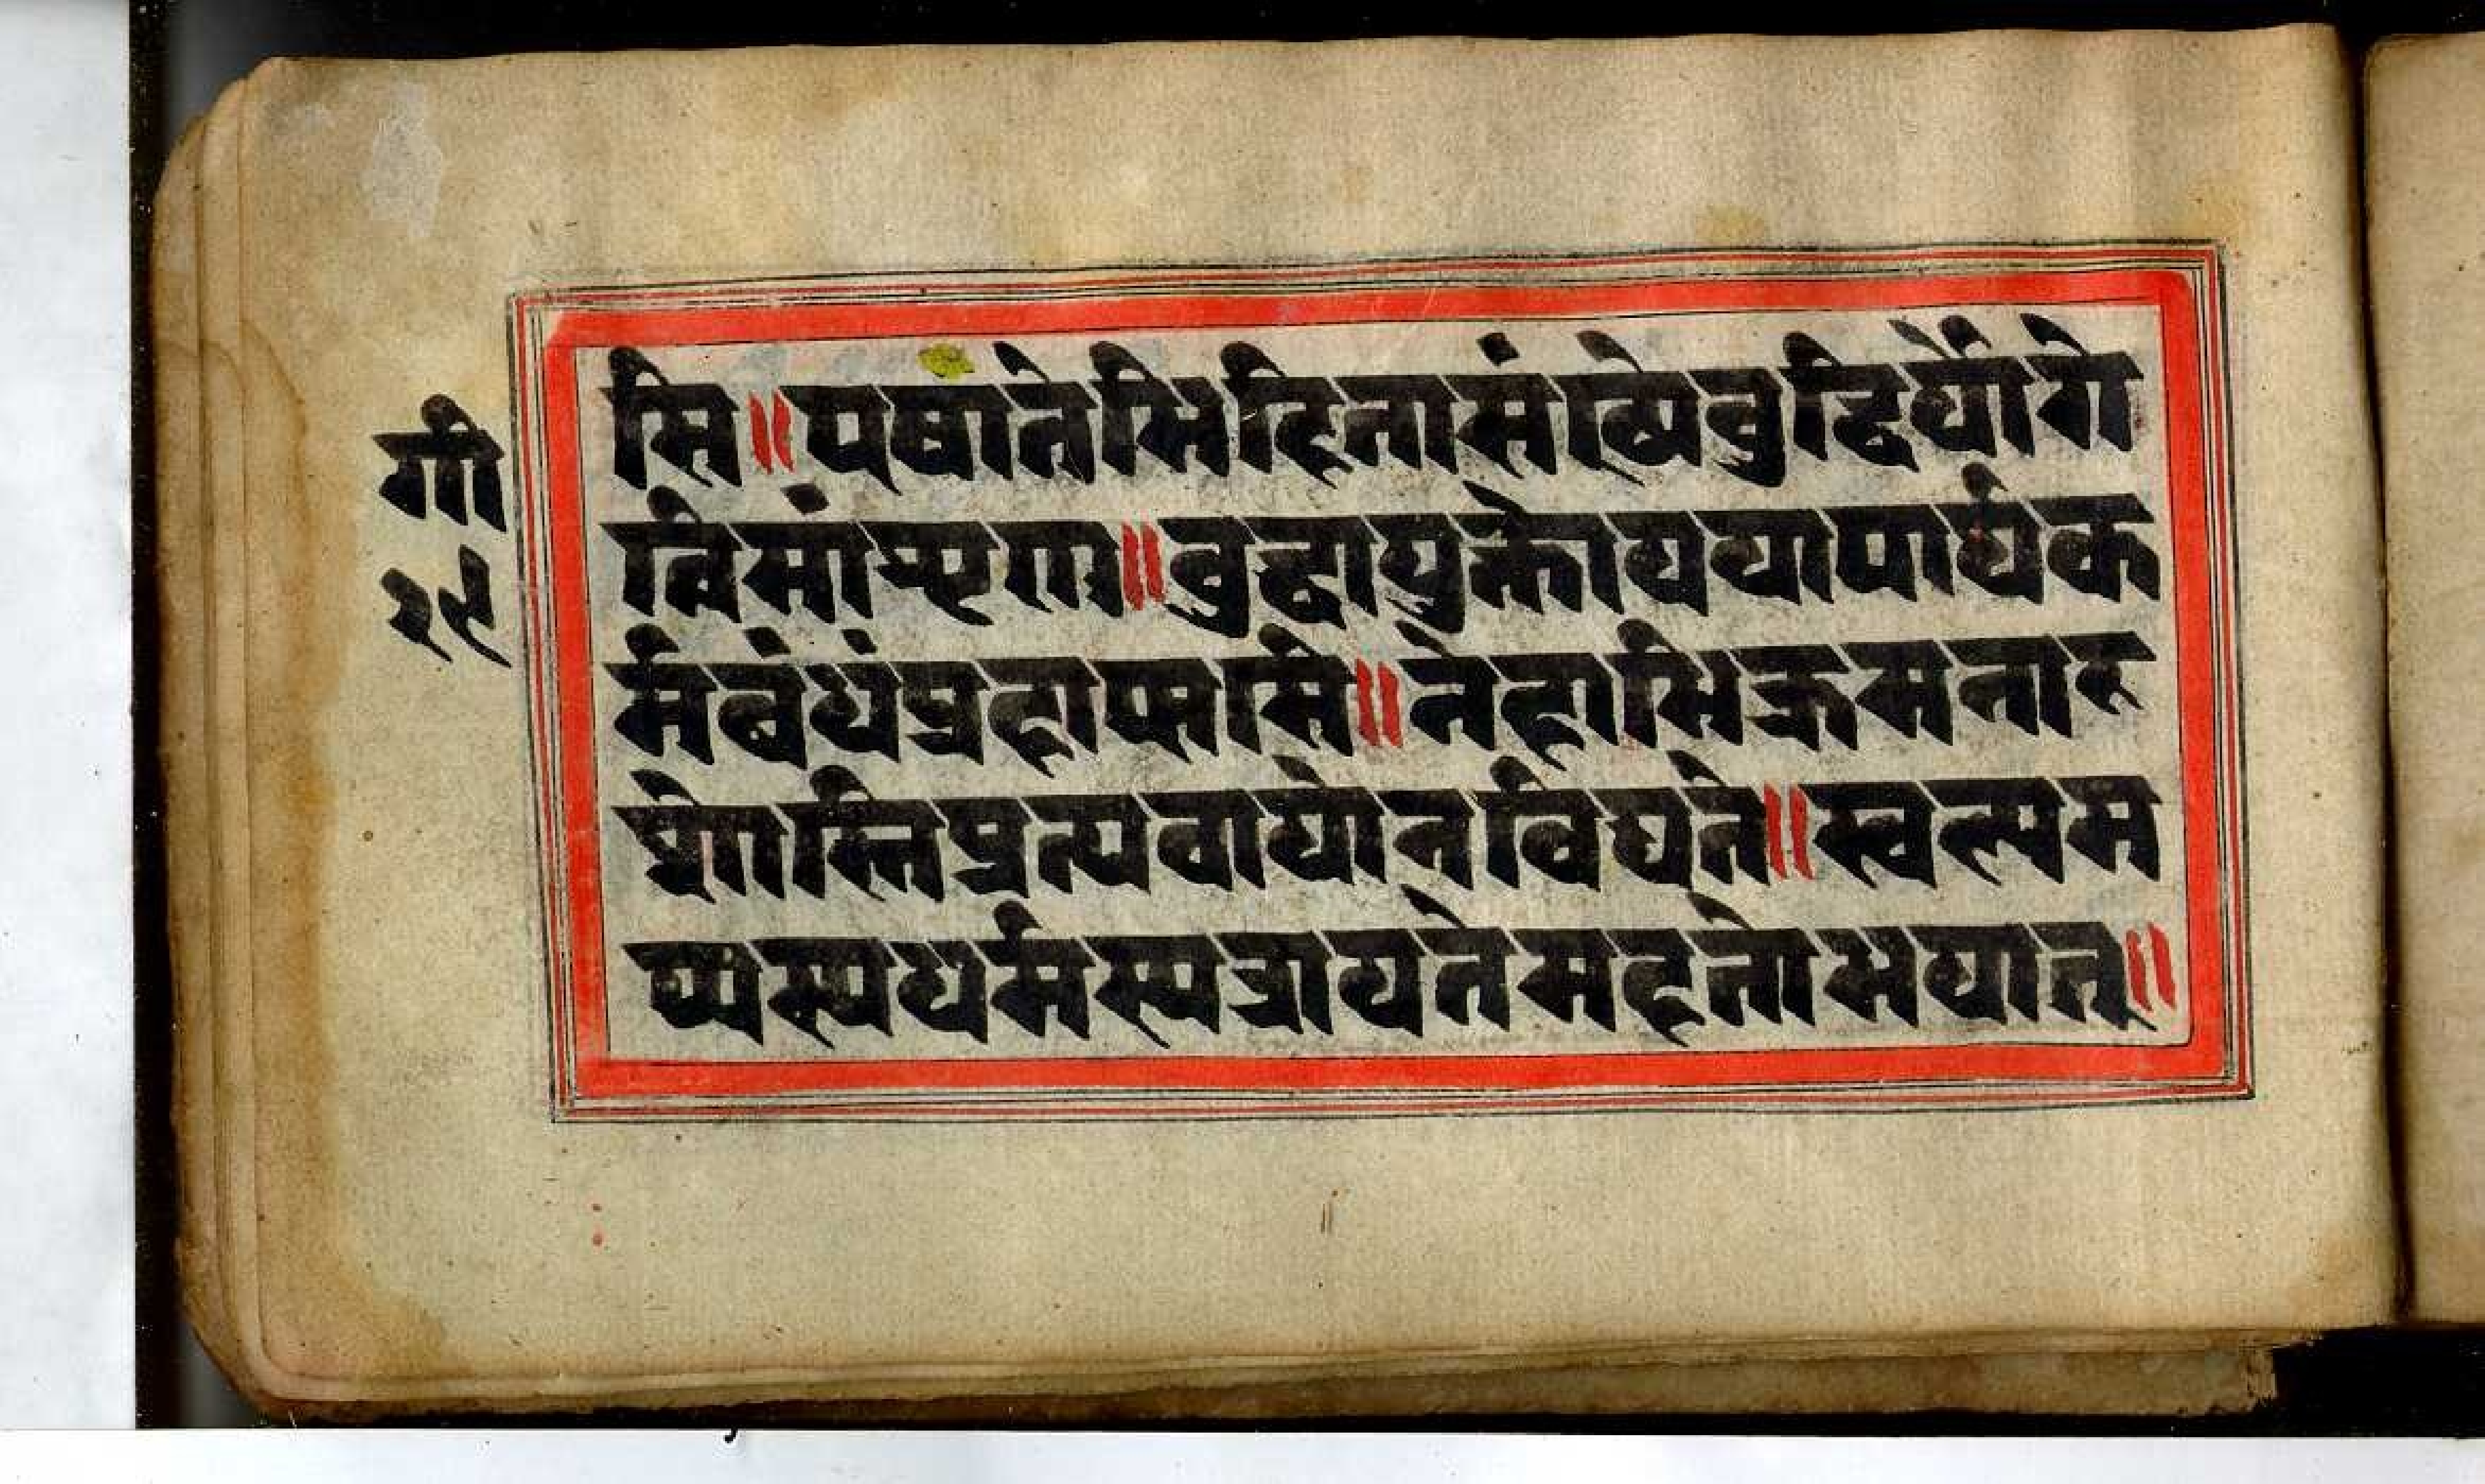 सि॥एषातेभिहितासांख्येवुद्धिर्योगे
त्विमांशृणु॥वुद्ध्यायुक्तोययापार्थक
र्मबंधंप्रहास्यसि॥नेहाभिक्रमनाद
शोस्तिप्रत्यवायोनविद्यते॥स्वल्पम
प्यस्यधर्मस्यत्रायतेमहतोभयात्॥
गी
२९